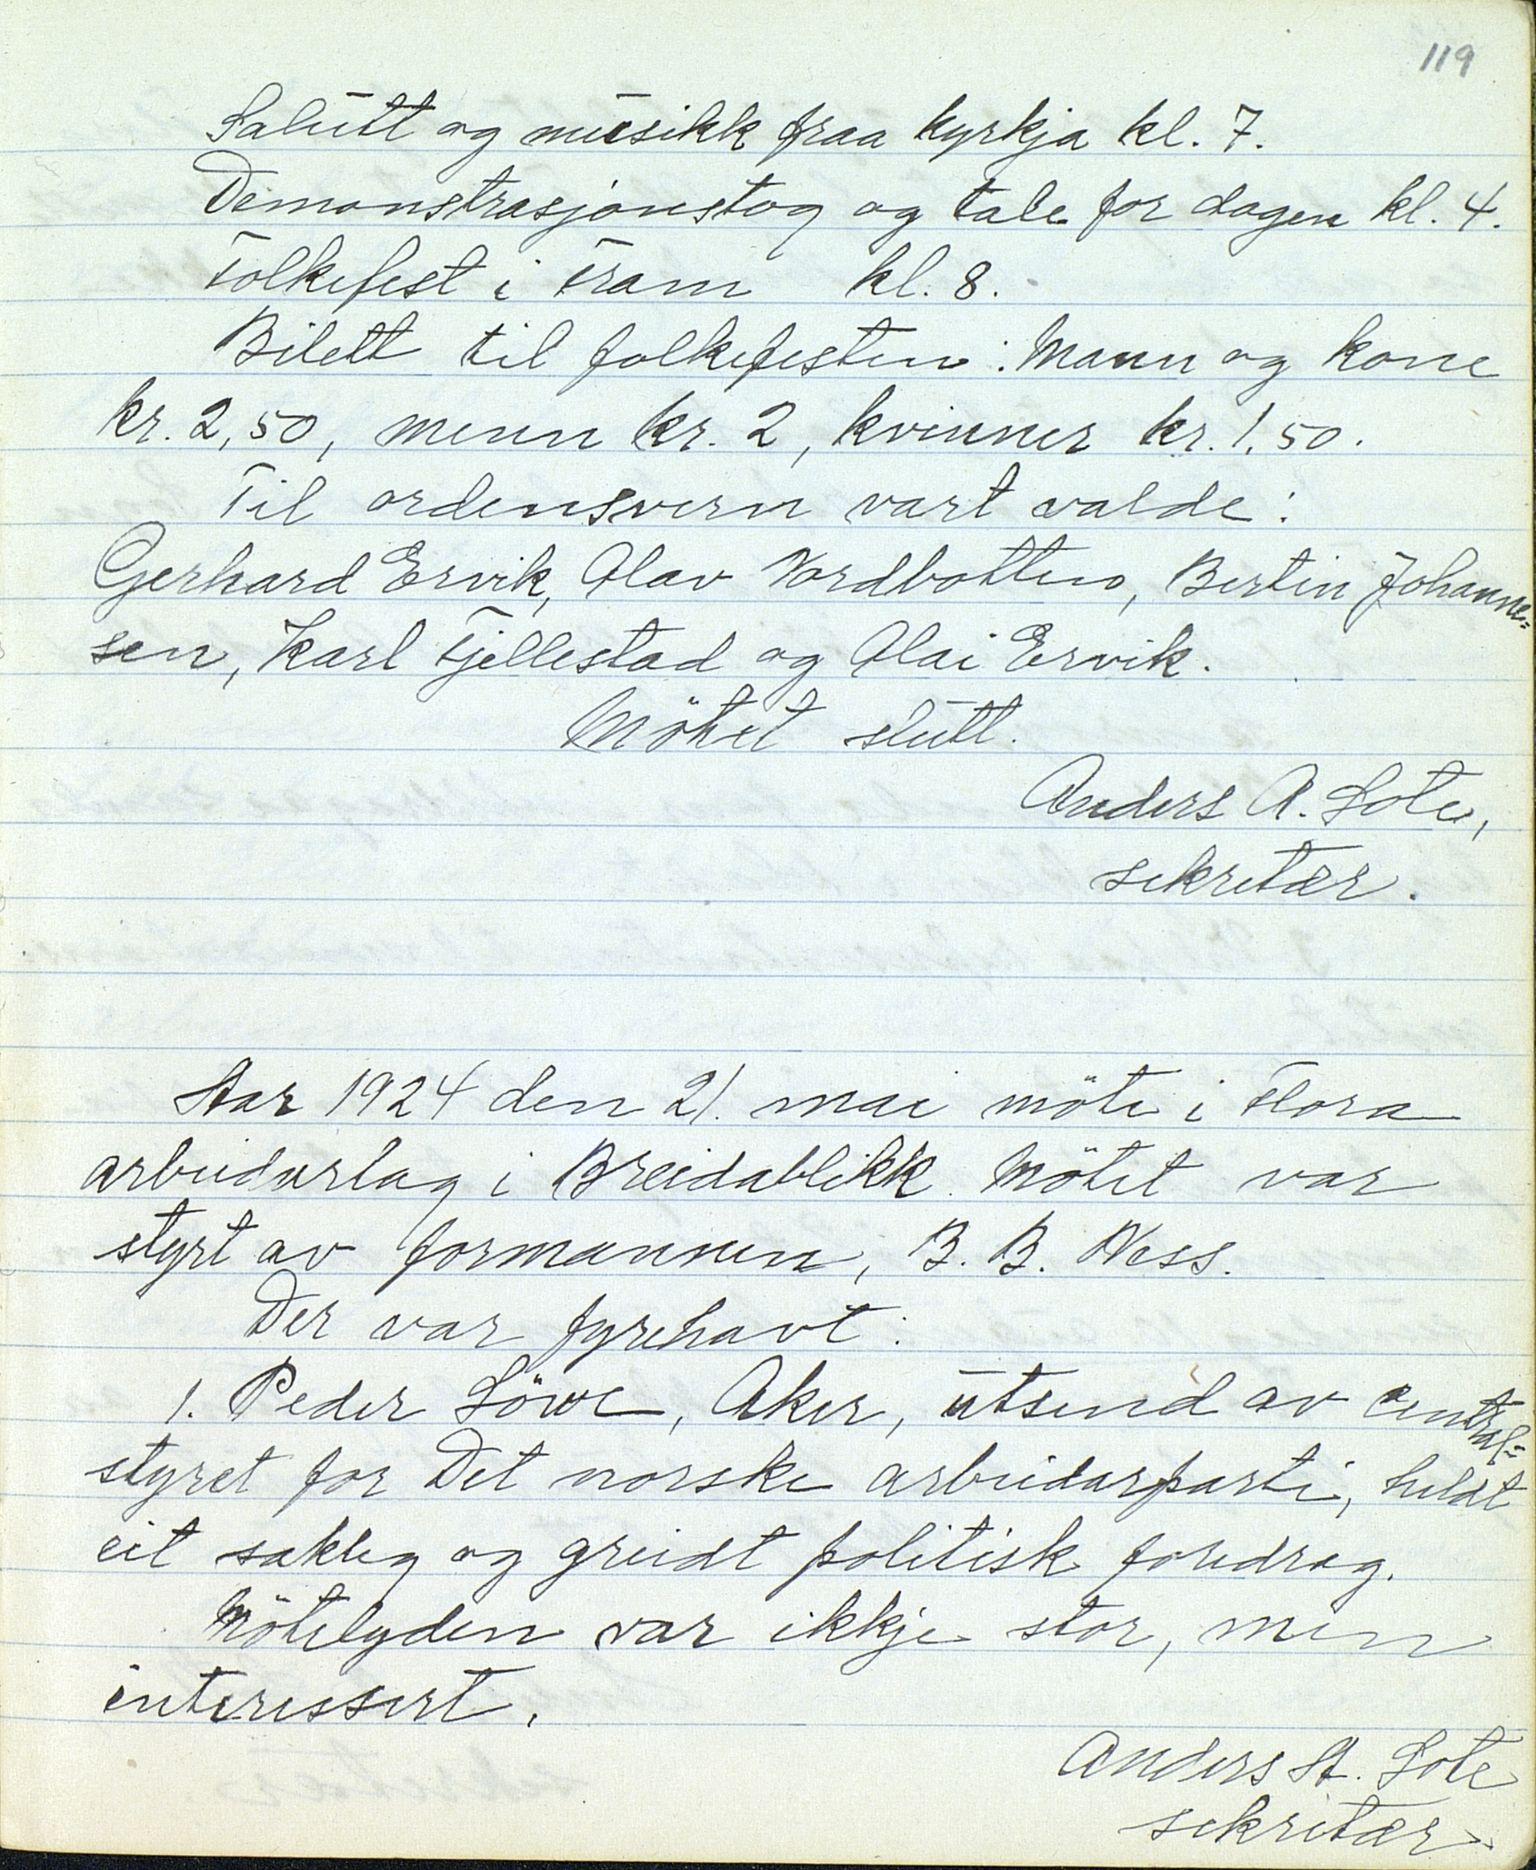 119
Salutt og musikk fraa kyrkja kl. 7.
Demonstrasjonstog og tale for dagen kl. 4.
Folkefest i Fram kl. 8.
Bilett til folkefesten: Mann og kone
kr. 2,50, menn kr. 2, kvinner kr. 1,50.
Til ordensvern vart valde:
Gerhard Ervik, Olav Nordbotten, Bertin Johanne=
sen, Karl Fjellestad og Olai Ervik.
Mötet slutt.
Anders A. Sote,
sekretær.
Aar 1924 den 21. mai möte i Flora
arbeidarlag i Breidablikk. Mötet var
styrt av formannen, B. B. Ness.
Der var fyrehavt:
1. Peder Löwe, Aker, utsend av central=
styret for Det norske arbeidarparti, heldt
eit sakleg og greidt politisk foredrag.
Mötelyden var ikkje stor, men
interessert.
Anders A. Sote
sekretær